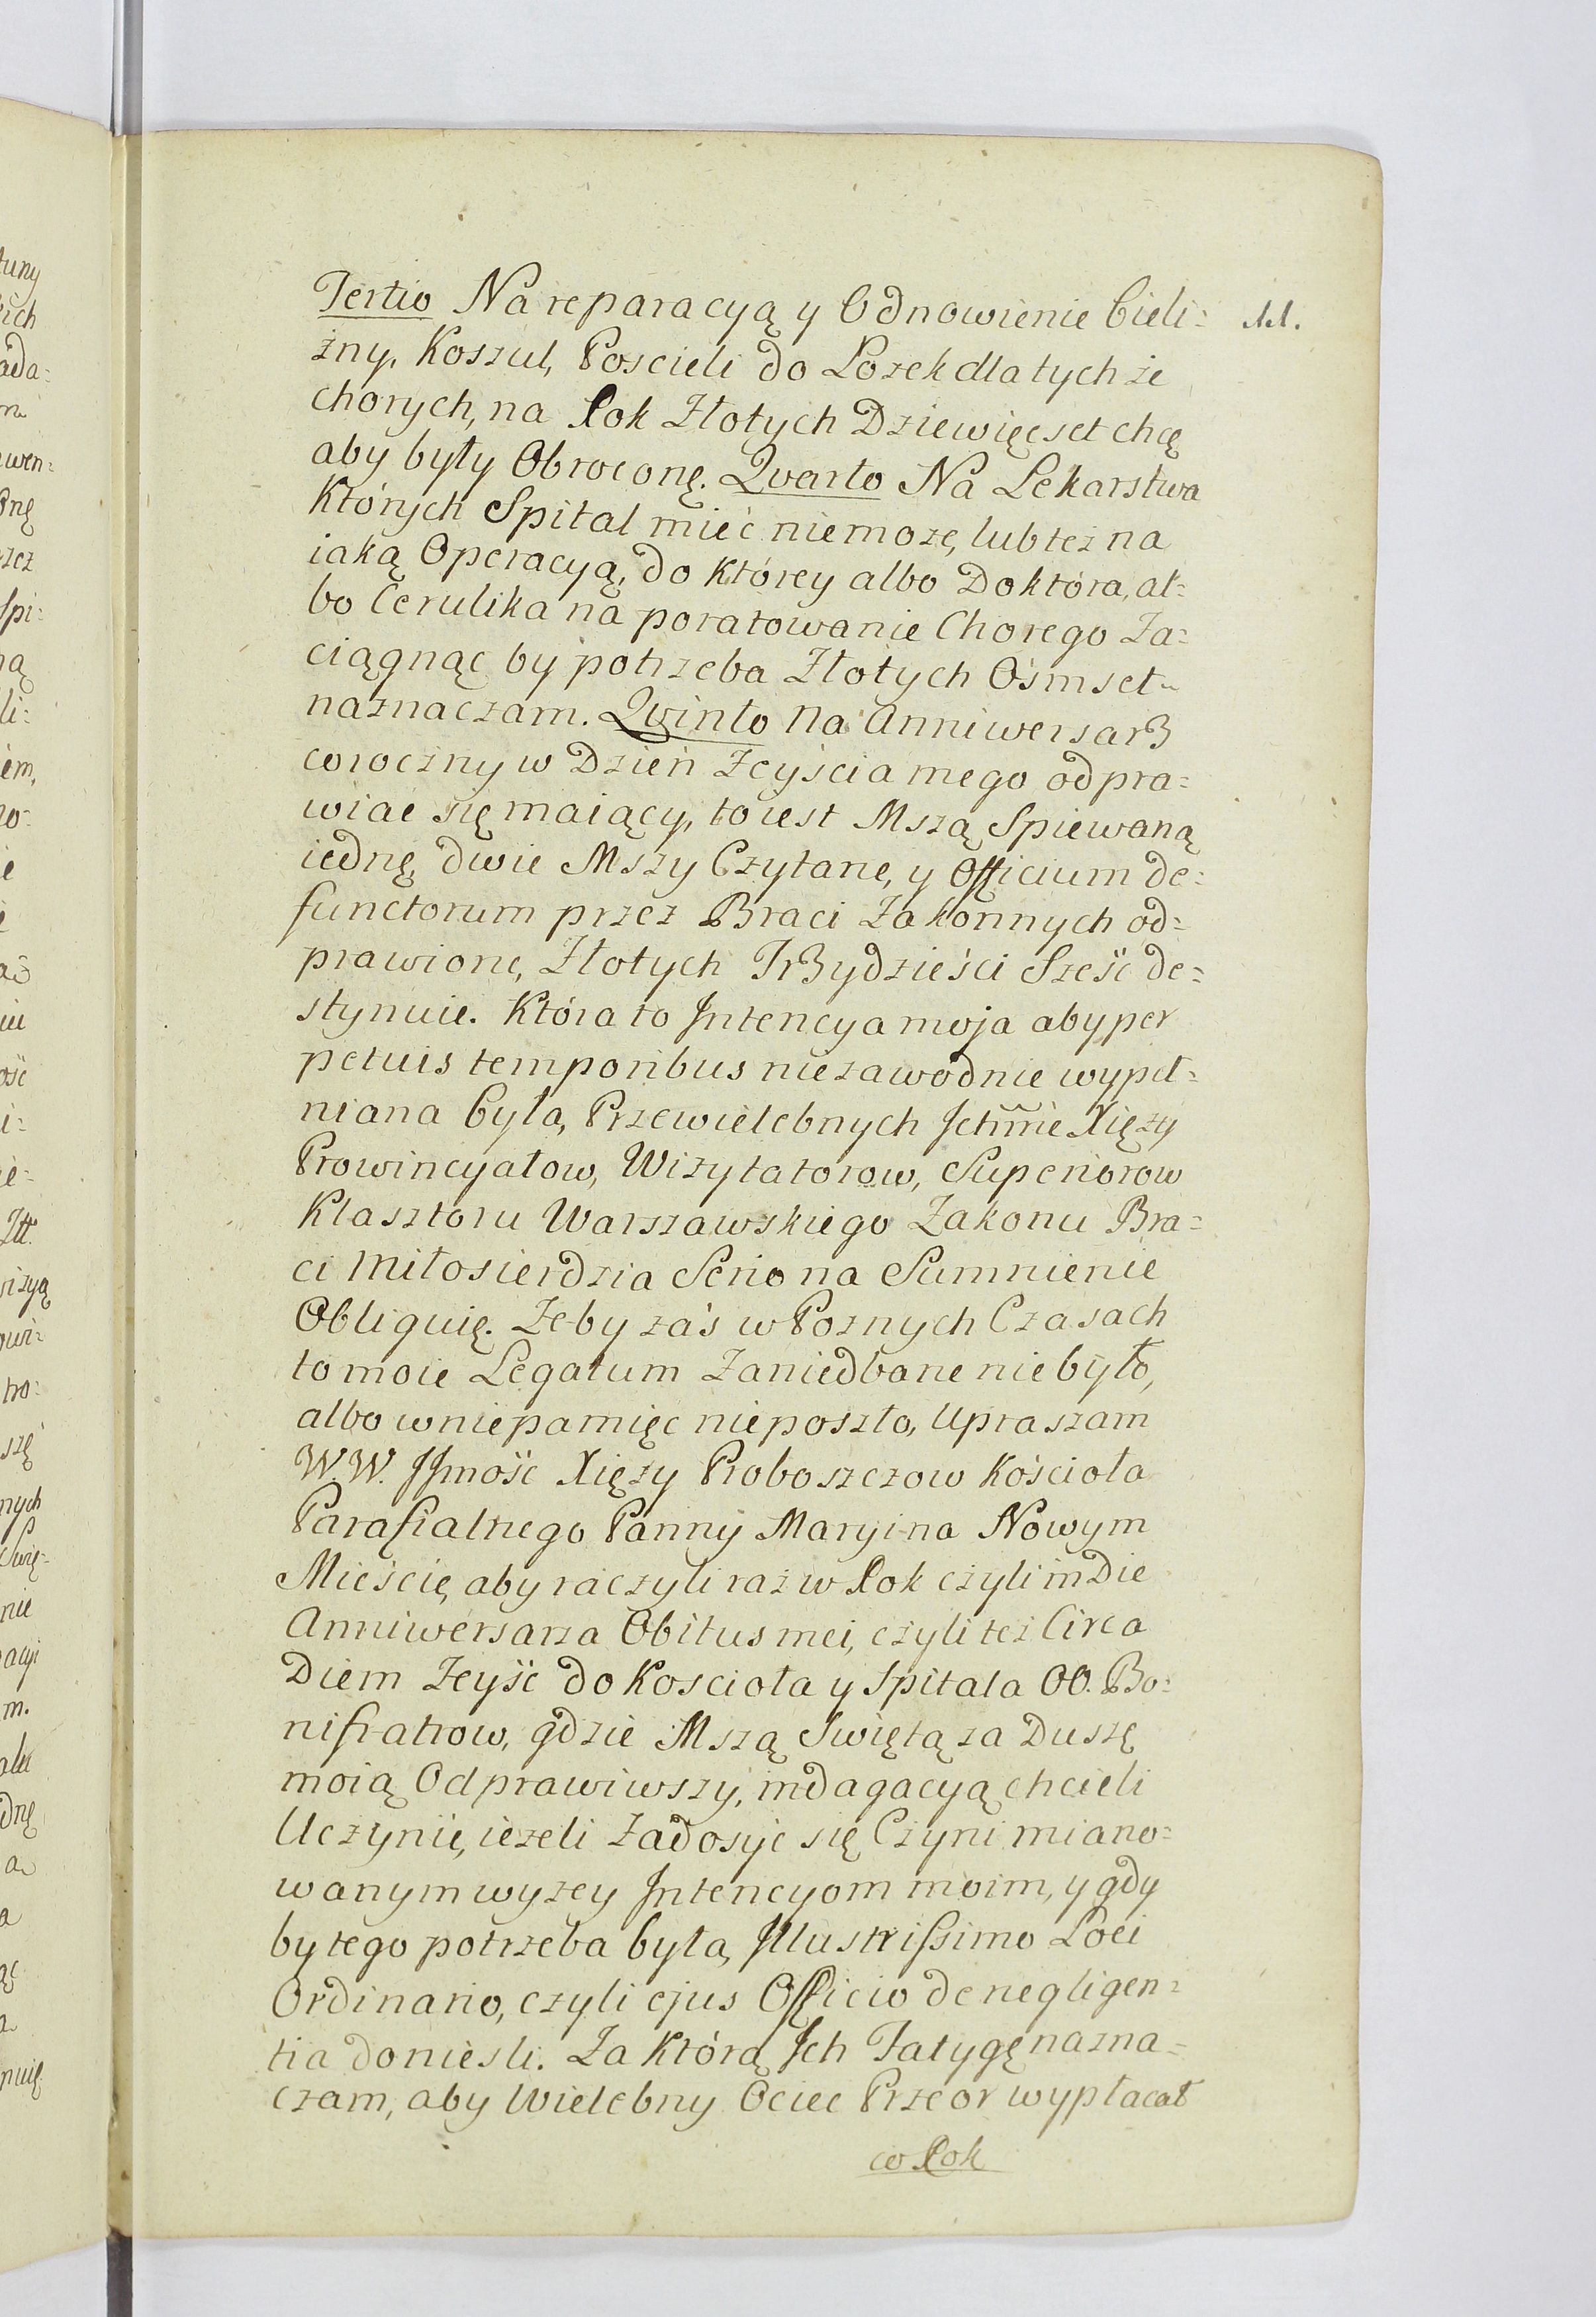 Tertio Na reparacyą y Odnowienie bieli= 11.
zny, Koszul, Poscieli do Lozek dla tych ze
chorych, na Rok Złotych Dziewięcset chcę
aby były Obroconę. Qvarto Na Lekarstwa
Których Spital mieć niemoze, lub tez na
iaką Operacyą, do Którey albo Doktóra, al=
bo Cerulika na poratowanie Chorego Za=
ciągnąc by potrzeba Złotych Ośmset
naznaczam. Qvinto Na Anniwersarz
coroczny w Dzień Zeyścia mego odpra=
wiać się maiący, to iest Mszą Spiewaną
iednę, dwie Mszy Czytane, y Officium de=
functorum przez Braci Zakonnych od=
prawione, Złotych Trzydzieści Sześć de=
stynuie. Która to Intencya moja aby per
petuis temporibus niezawodnie wypeł=
niana była, Przewielebnych Ichmć Xięzy
Prowincyałow, Wizytatorow, Superiorow
Klasztoru Warszawskiego Zakonu Bra=
ci Miłosierdzia Serio na Sumnienie
Obliguię. Zeby zaś w Poznych Czasach
to moie Legatum Zaniedbane nie było,
albo w niepamięc nie poszło, Upraszam
W.W. JJmość Xięzy Proboszczow Kościoła
Parafialnego Panny Maryi na Nowym
Mieście, aby raczyli raz w Rok czyli in Die
Anniwersarza Obitus mei, czyli tez Circa
Diem Zeyść do Koscioła y Spitala OO. Bo=
nifratrow, gdzie Mszą Swiętą za Duszę
moią Odprawiwszy, indagacyą chcieli
Uczynić, iezeli Zadosyc się Czyni miano=
wanym wyzey Intencyom moim, y gdy
by tego potrzeba była, Illustrissimo Loci
Ordinario, czyli ejus Officio de negligen=
tia doniesli. Za Którą Ich Fatygę nazna=
czam, aby Wielebny Ociec Przeor wypłacał
co Rok